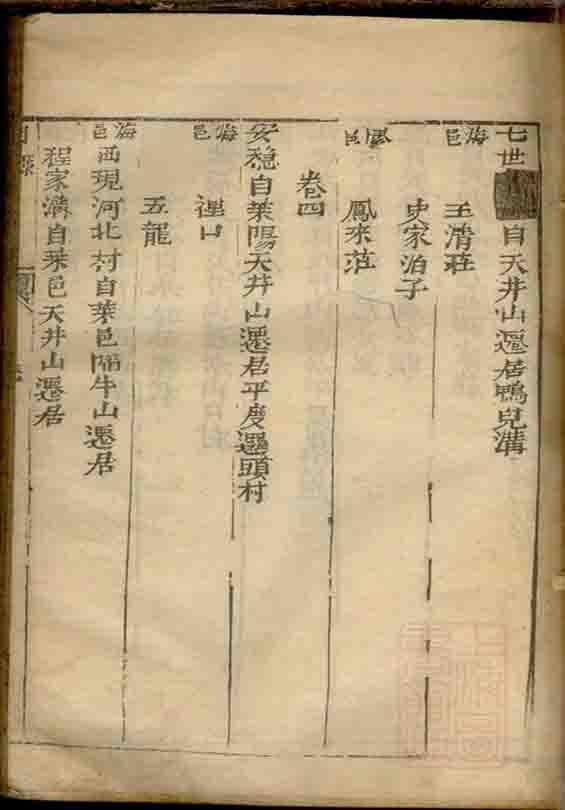 七世 自天井山遷居鴨兒溝
海邑 王清莊
史家泊子
鳳來莊
卷四
安穏自萊陽天井山遷居平度遇頭村
海邑 裡口
五龍
海邑 西現河北村自萊邑隔牛山遷居
程家溝自萊邑天井山遷居
目錄